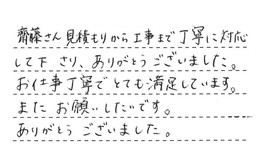 齋藤さん見積もりから工事まで丁寧に対応
して下さり、ありがとうございました。
お仕事丁寧でとても満足しています。
またお願いしたいです。
ありがとうございました。